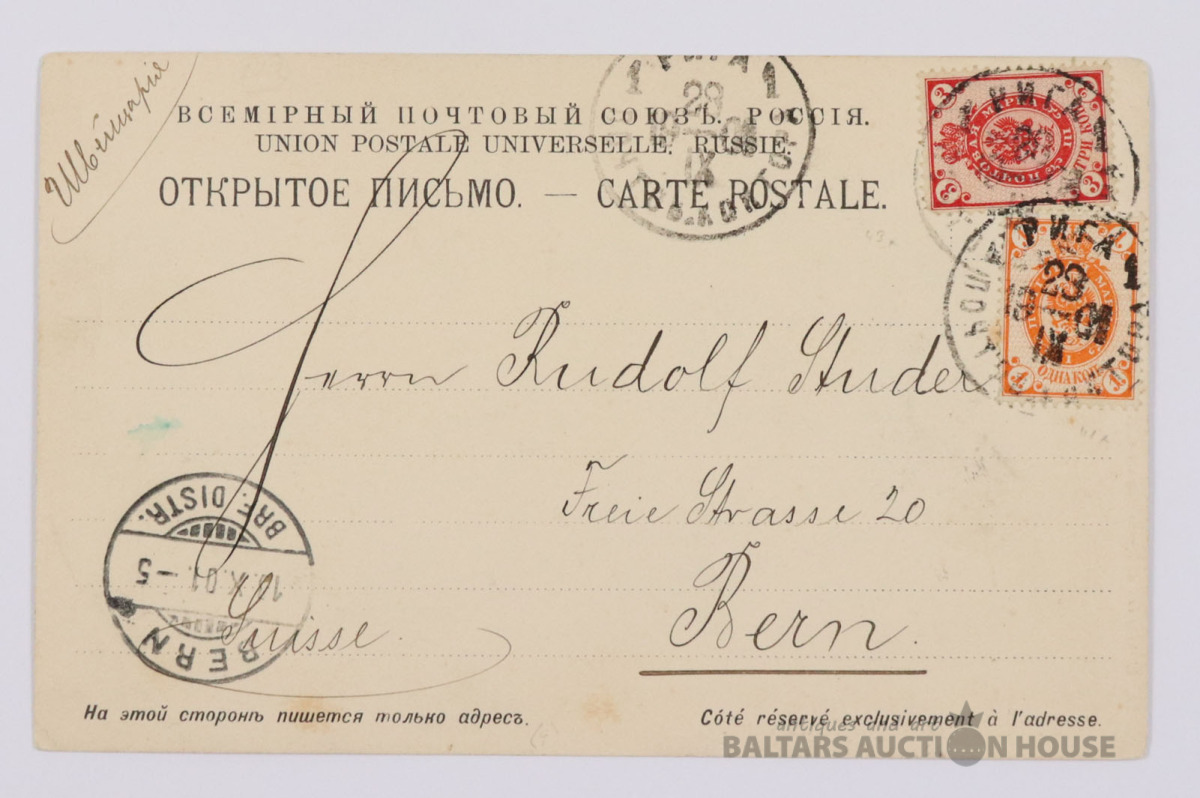 Швейцарія
ВСЕМІРНЫЙ ПОЧТОВЫЙ СОЮЗЪ. РОССІЯ.
UNION POSTALE UNIVERSELLE. RUSSIE.
ОТКРЫТОЕ ПИСЬМО. — CARTE POSTALE.
РИГА
1 23 1
IX
3 3
РИГА
1
23
IX 01
1 1
ОДНА КОП.
1 1
Herrn Rudolf Studer
Freie Strasse 20
Bern.
Suisse.
BRF. DISTR.
1. X. 01 – 5
BERN
На этой сторонѣ пишется только адресъ.
Côté réservé exclusivement à l'adresse.
antiques and art
BALTARS AUCTION HOUSE